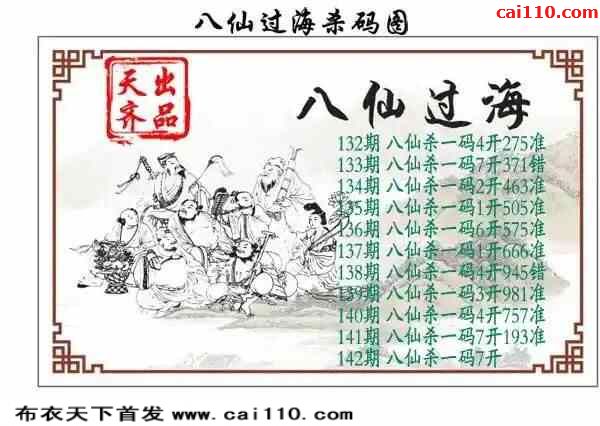 八仙过海杀码图
cai110.com
天齐出品
八仙过海
132期 八仙杀一码4开275准
133期 八仙杀一码7开371错
134期 八仙杀一码2开463准
135期 八仙杀一码1开505准
136期 八仙杀一码6开575准
137期 八仙杀一码1开666准
138期 八仙杀一码4开945错
139期 八仙杀一码3开981准
140期 八仙杀一码4开757准
141期 八仙杀一码7开193准
142期 八仙杀一码7开
布衣天下首发 www.cai110.com